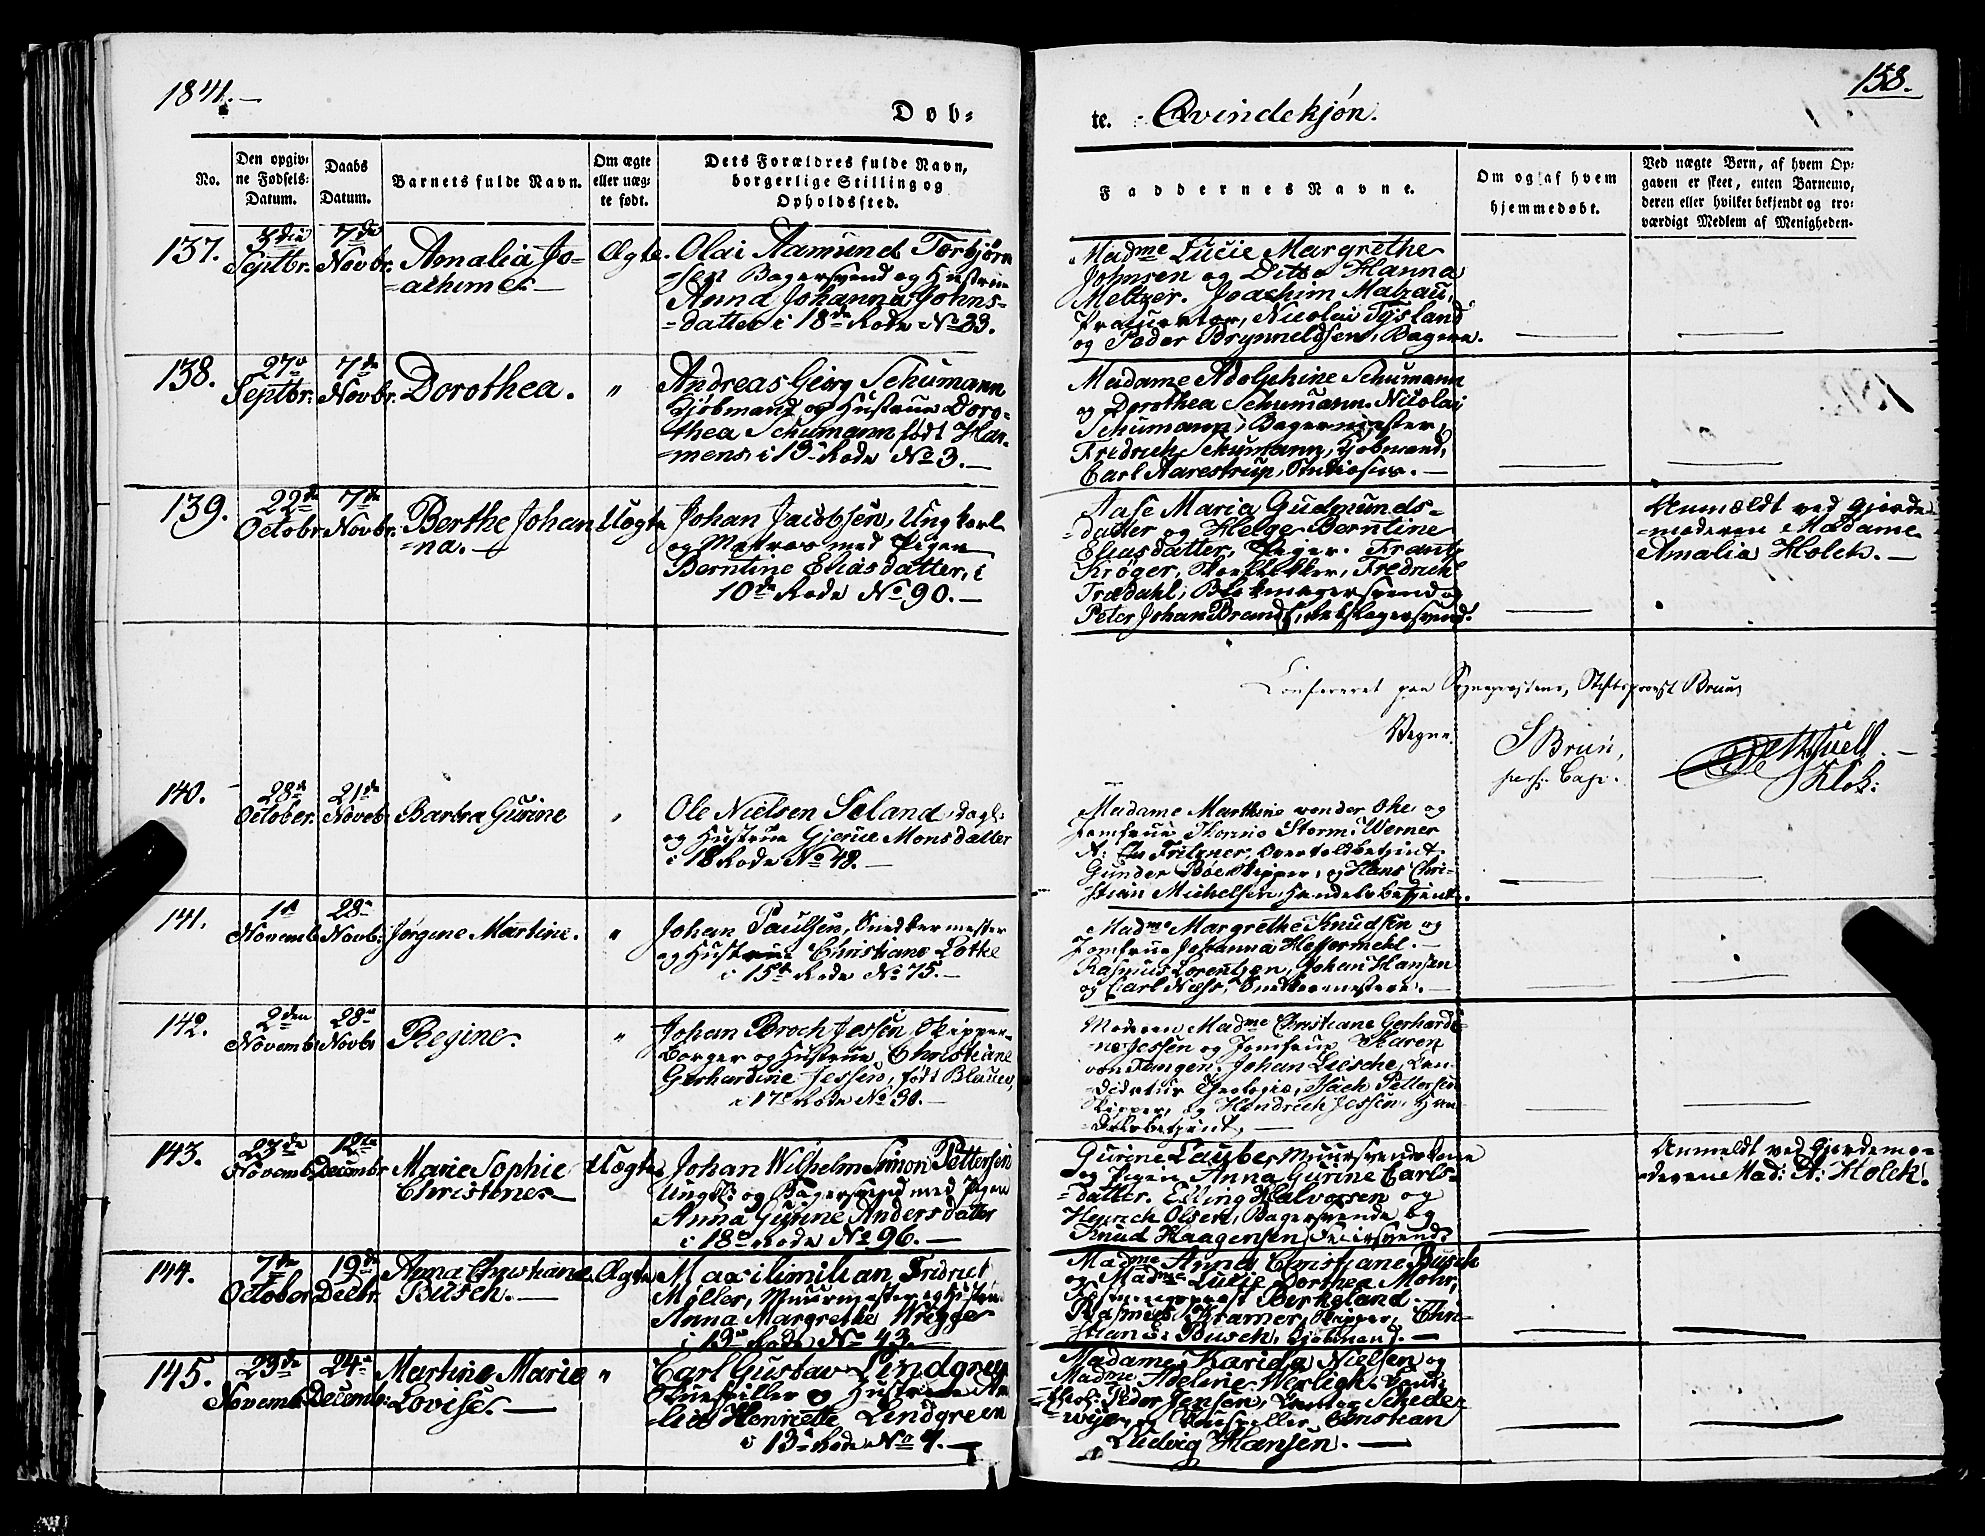 1841.
158.
Døb-
te. Qvindekjøn.
No.
Den opgiv-
ne Fødsels-
Datum.
Daabs
Datum.
Barnets fulde Navn.
Om ægte
eller uæg-
te født.
Dets Forældres fulde Navn,
borgerlige Stilling og
Opholdssted.
Faddernes Navne.
Om og af hvem
hjemmedøbt.
Ved uægte Børn, af hvem Op-
gaven er skeet, enten Barnemo-
deren eller hvilket bekjendt og tro-
værdigt Medlem af Menigheden.
137.
3die
Septbr.
7de
Novbr.
Amalia Jo-
achime.
Ægte.
Olai Aamund Torbjørn-
sen Bagersvend og Hustrue
Anna Johanna Johns-
datter i 18de Rode No 33.
Madme Lucie Margrethe
Johnsen og Ditto Hanna
Meltzer. Joachim Malzau,
Procurator, Nicolai Tysland
og Peder Brynnildsen, Bagere.
138.
27e
Septbr.
7de
Novbr.
Dorothea.
"
Andreas Georg Schumann
Kjøbmand og Hustrue Doro-
thea Schumann født Har-
mens, i 13 Rode No 3.
Madame Adolphine Schumann
og Dorothea Schumann. Nicolai
Schumann, Bagermester,
Fredrich Schumann, Kjøbmand,
Carl Aarestrup, Studiosus.
139.
22de
Octobr.
7de
Novbr.
Berthe Johan-
na.
Uægte
Johan Jacobsen, Ungkarl
og Matros med Pigen
Berntine Eliasdatter, i
10de Rode No 90.
Aase Maria Gudmunds-
datter og Helge Berntine
Eliasdatter, Piger. Frantz
Krøger, Fredrich
Trædahl, Blikmagersvend og
Peter Johan Brandt,
Anmældt ved Gjorde-
moderen Madame
Amalia Holck.
Confereret paa Sognepræstens, Stiftsprovst Bruns
Vegne.
S Brun,
pers: Cap.
Klok:
140.
28de
October.
21de
Novbr.
Barbra Gurine
"
Ole Nielsen Seland, Dagl.
og Hustrue Gjertrue Monsdatter
i 18 Rode No 48.
Madame Marthine von der Ohe og
Jomfrue Storm. Werner
Fritzner, Overtoldbetjent.
Gunder Bøe Skipper, og Hans Chri-
stian Michelsen, Handelsbetjent.
141.
1st
Novemb.
28de
Novb:
Jørgine Martine.
"
Johan Paulsen, Snedkermester
og Hustrue Christiane Lotke
i 15de Rode No 75.
Madme Margrethe Knudsen og
Jomfrue Johanna Heffermehl.
Rasmus Lorentzen, Johan Hansen
og Carl Næss, Snedkermestere.
142.
2den
Novemb:
28de
Novbr
Regine.
"
Johan Broch Jessen, Skipper-
borger og Hustrue Christiane
Gerhardine Jessen, født Blauw,
i 17de Rode No 30.
Moderen Madme Christiane Gerhardi-
ne Jessen og Jomfrue Maren
von Tangen. Johan Liesche, Can-
didatur Theologiæ, Isach Pettersen
Skipper, og Hendrich Jessen, Han-
delsbetjent.
143.
23de
Novemb:
12te
Decembr
Marie Sophie
Christine.
Uægte
Johan Wilhelm Simon Pettersen
Ungk: og Bagersvend med Pigen
Anna Gurine Andersdatter
i 18de Rode No 96.
Gurine Lauber, Muursvendskone
og Pigen Anna Gurine Carls-
datter. Elling Halvorsen og
Henrich Olsen, Bagersvende og
Knud Haagensen,
Anmeldt ved Gjordemo-
deren Mad: A: Holck.
144.
7de
October
19de
Decbr.
Anna Christiane
Busch.
Ægte
Maxilimilian Fridriet
Møller, Muurmester og Hustrue
Anna Margrethe Wrigge
i 13de Rode No 43.
Madme Anna Christiane Busch
og Madme Lucie Dorthea Mohr,
Berkeland.
Rasmus Kramer, Skipper, Chri-
stian Busch, Kjøbmand.
145.
23de
Novemb:
24de
Decembr:
Martine Marie
Lovise.
"
Carl Gustav Lindgreen
Skuespiller og Hustrue
Henriette Lindgreen
i 13de Rode No 7.
Madame Karida Nielsen og
Madme Adeline Werligh. Cand:
theol: Peder Jensen, Schede-
wije, og Skuespiller Christian
Ludvig Hansen.